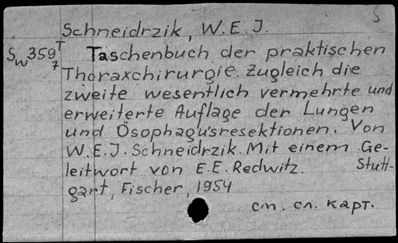 S
Schneidrzik, W.E.J.
Sw359T/7 Taschenbuch der praktischen
Thoraxchirurgie. Zugleich die
zweite wesentlich vermehrte und
erweiterte Auflage der Lungen
und Ösophagusresektionen. Von
W.E.J. Schneidrzik. Mit einem Ge-
leitwort von E.E. Redwitz. Stutt-
gart, Fischer, 1954
см. сл. карт.